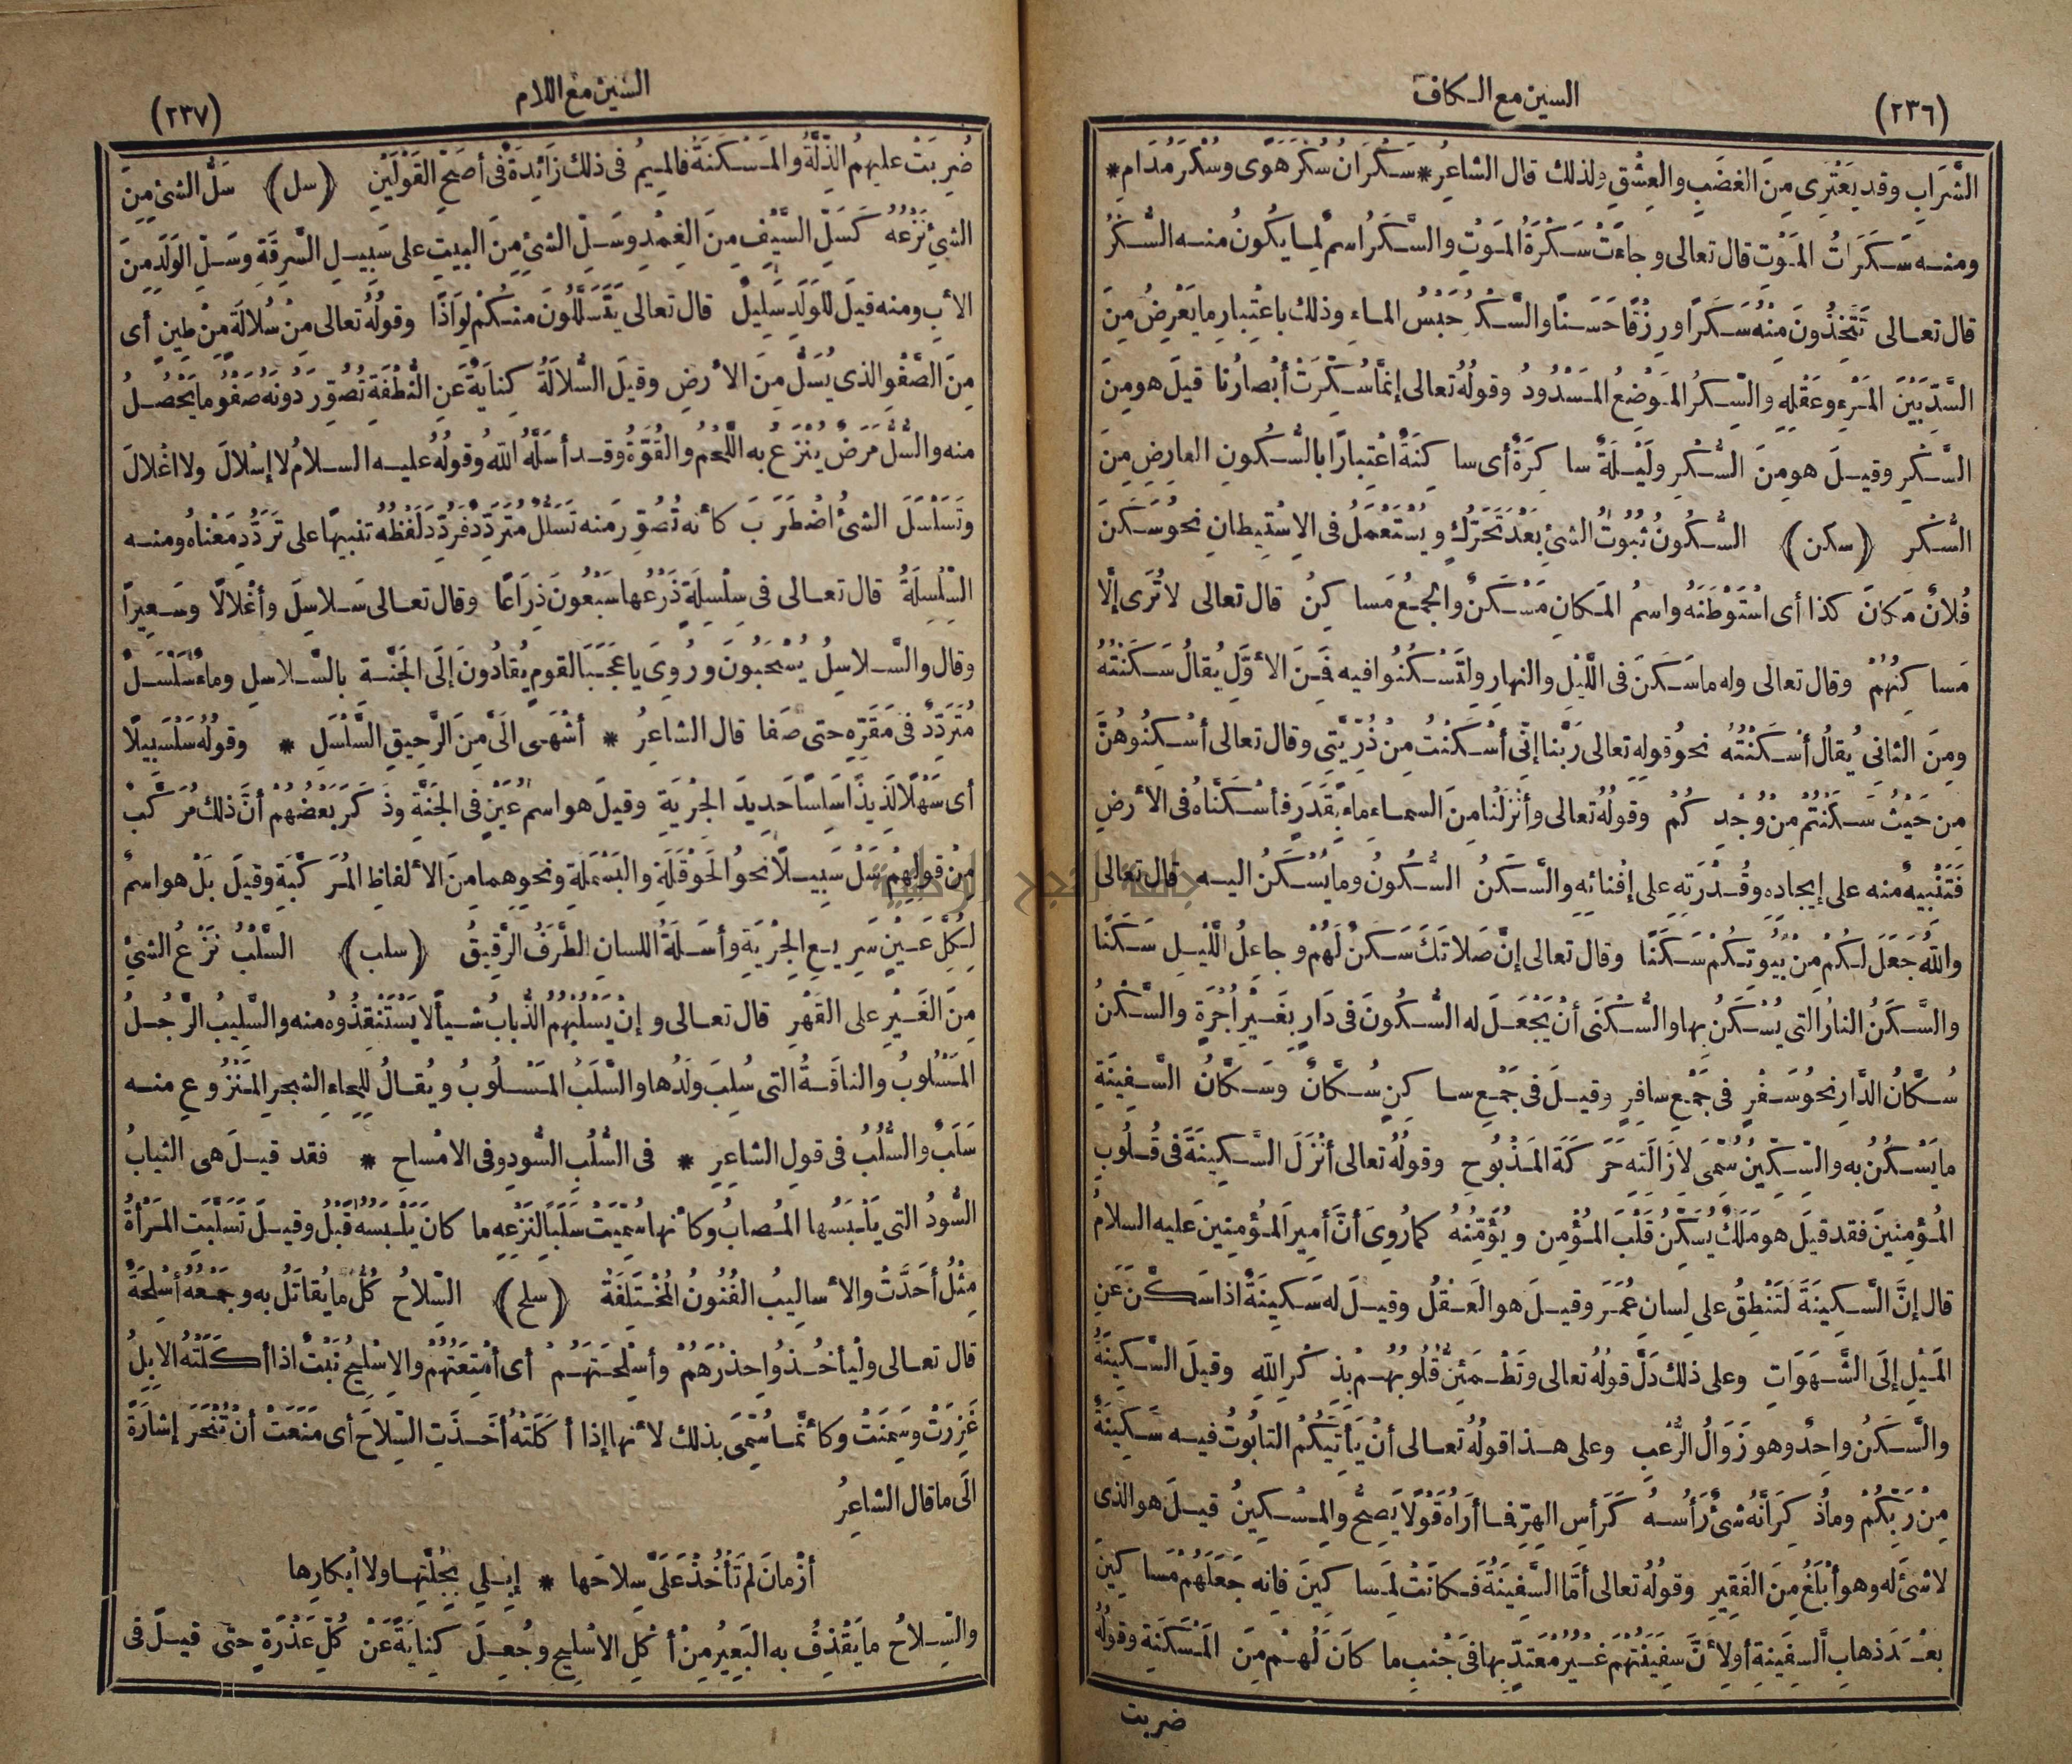 (٢٣٦)
السين مع الـكاف
الشَّرَابِ وقد يَعْتَرِى مِنَ الغَضَبِ والعِشْقِ ولذلك قال الشاعرُ * سَكْرَانُ سُكْرَ هَوًى وسُكْرَ مُدَامٍ *
ومنه سَكَرَاتُ المَوْتِ قال تعالى وجاءَتْ سَكْرَةُ المَوْتِ والسَّكَرُ اسمٌ لِما يكونُ منه السُّكْرُ
قال تعالى تَتَّخِذُونَ مِنْهُ سَكَرًا ورِزْقًا حَسَنًا والسَّكْرُ حَبْسُ الماءِ وذلك باعْتِبارِ ما يَعْرِضُ مِنَ
السَّدِّ بَيْنَ المَرْءِ وعَقْلِهِ والسِّكْرُ المَوْضِعُ المَسْدُودُ وقولُه تعالى إنَّما سُكِّرَتْ أبْصارُنا قيلَ هو مِنَ
السَّكْرِ وقيلَ هو مِنَ السُّكْرِ ولَيْلَةٌ ساكِرَةٌ أى ساكِنَةٌ اعْتِبارًا بالسُّكُونِ العارِضِ مِنَ
السُّكْرِ (سكن) السُّكُونُ ثُبُوتُ الشئِ بَعْدَ تَحَرُّكٍ ويُسْتَعْمَلُ فى الاِسْتِيطانِ نحوُ سَكَنَ
فُلانٌ مَكانَ كذا أى اسْتَوْطَنَهُ واسمُ المَكانِ مَسْكَنٌ والجمعُ مَساكِنُ قال تعالى لا تُرَى إلَّا
مَساكِنُهُمْ وقال تعالى وله ما سَكَنَ فى اللَّيْلِ والنهارِ ولِتَسْكُنُوا فيه فَمِنَ الأوَّلِ يُقالُ سَكَنْتُهُ
ومِنَ الثانى يُقالُ أسْكَنْتُهُ نحوُ قولِهِ تعالى رَبَّنا إنِّى أسْكَنْتُ مِنْ ذُرِّيَّتِى وقال تعالى أسْكِنُوهُنَّ
مِن حَيْثُ سَكَنْتُمْ مِنْ وُجْدِكُمْ وقولُهُ تعالى وأنْزَلْنا مِنَ السماءِ ماءً بِقَدَرٍ فأسْكَنَّاهُ فى الأرضِ
فَتَنْبِيهٌ منه على إيجادِهِ وقُدْرَتِهِ على إفْنائِهِ والسَّكَنُ السُّكُونُ وما يُسْكَنُ اليه قال تعالى
واللّٰهُ جَعَلَ لكُمْ مِنْ بُيُوتِكُمْ سَكَنًا وقال تعالى إنَّ صَلاتَكَ سَكَنٌ لَهُمْ وجاعِلُ اللَّيْلِ سَكَنًا
والسَّكَنُ النارُ التى يُسْكَنُ بِها والسُّكْنَى أنْ يَجْعَلَ له السُّكُونَ فى دَارٍ بِغَيْرِ أُجْرَةٍ والسَّكْنُ
سُكَّانُ الدَّارِ نحوُ سَفْرٍ فى جَمْعِ سافِرٍ وقيلَ فى جَمْعِ ساكِنٍ سُكَّانٌ وسَكَّانُ السَّفِينَةِ
ما يَسْكُنُ به والسِّكِّينُ سُمِّىَ لازَالَتِهِ حَرَكَةَ المَذْبُوحِ وقولُهُ تعالى أنْزَلَ السَّكِينَةَ فى قُلُوبِ
المُؤْمِنِينَ فقد قيلَ هو مَلَكٌ يُسَكِّنُ قَلْبَ المُؤْمِنِ ويُؤَمِّنُهُ كما رُوِىَ أنَّ أميرَ المُؤْمِنِينَ عليه السلامُ
قال إنَّ السَّكِينَةَ لَتَنْطِقُ على لِسانِ عُمَرَ وقيلَ هو العَقْلُ وقيلَ له سَكِينَةٌ اذا سَكَّنَ عَنِ
المَيْلِ إلَى الشَّهَوَاتِ وعلى ذلك دَلَّ قولُهُ تعالى وتَطْمَئِنُّ قُلُوبُهُمْ بِذِكْرِ اللّٰهِ وقيلَ السَّكِينَةُ
والسَّكَنُ واحِدٌ وهو زَوَالُ الرُّعْبِ وعلى هذا قولُهُ تعالى أنْ يَأْتِيَكُمُ التابُوتُ فيه سَكِينَةٌ
مِنْ رَبِّكُمْ وما ذُكِرَ أنَّهُ شئٌ رَأْسُهُ كَرَأْسِ الهِرِّ فما أرَاهُ قَوْلًا يَصِحُّ والمِسْكِينُ قيلَ هو الذى
لا شئَ له وهو أبْلَغُ مِنَ الفَقِيرِ وقولُهُ تعالى أمَّا السَّفِينَةُ فكانَتْ لِمَساكِينَ فانه جَعَلَهُمْ مَساكِينَ
بعْدَ ذهابِ السفِينةِ أولأنَّ سفِينَتَهُمْ غيرُ مُعْتَدٍّ بها فى جَنْبِ ما كانَ لهُمْ مِنَ المَسْكَنَةِ وقولُهُ
ضربت
(٢٣٧)
السين مع اللام
ضُرِبَتْ عليهمُ الذِّلَّةُ والمَسْكَنَةُ فالمِيمُ فى ذلك زَائِدَةٌ فى أصَحِّ القَوْلَيْنِ (سل) سَلُّ الشئِ مِنَ
الشئِ نَزْعُهُ كَسَلِّ السَّيْفِ مِنَ الغِمْدِ وسَلِّ الشئِ مِنَ البيتِ على سَبِيلِ السَّرِقَةِ وسَلِّ الوَلَدِ مِنَ
الأبِ ومنه قيلَ للْوَلَدِ سَلِيلٌ قال تعالى يَتَسَلَّلُونَ منكُمْ لِوَاذًا وقولُهُ تعالى مِنْ سُلالَةٍ مِنْ طينٍ أى
مِنَ الصَّفْوِ الذى يُسَلُّ مِنَ الأرضِ وقيلَ السُّلالَةُ كِنايَةٌ عَنِ النُّطْفَةِ تُصُوِّرَ دُونَهُ صَفْوُ ما يَحْصُلُ
منه والسُّلُّ مَرَضٌ يُنْزَعُ به اللَّحْمُ والقُوَّةُ وقد أسَلَّهُ اللّٰهُ وقولُهُ عليه السلامُ لا إسْلالَ ولا اغْلالَ
وتَسَلْسَلَ الشئُ اضْطَرَبَ كأنه تُصُوِّرَ منه تَسَلُّلٌ مُتَرَدِّدٌ فَرُدِّدَ لَفْظُهُ تنبيهًا على تَرَدُّدِ مَعْناهُ ومنه
السِّلْسِلَةُ قال تعالى فى سِلْسِلَةٍ ذَرْعُها سَبْعُونَ ذِرَاعًا وقال تعالى سَلاسِلَ وأغْلالًا وسَعِيرًا
وقال والسَّلاسِلُ يُسْحَبُونَ ورُوِىَ يا عَجَبًا لقومٍ يُقادُونَ إلَى الجَنَّةِ بِالسَّلاسِلِ وماءٌ سَلْسَلٌ
مُتَرَدِّدٌ فى مَقَرِّهِ حتى صَفا قال الشاعرُ * أشْهَى الَىَّ مِنَ الرَّحِيقِ السَّلْسَلِ * وقولُهُ سَلْسَبِيلًا
أى سَهْلًا لَذِيذًا سَلِسًا حَدِيدَ الجَرْيَةِ وقيلَ هو اسمُ عَيْنٍ فى الجَنَّةِ وذَكَرَ بَعْضُهُمْ أنَّ ذلك مُرَكَّبٌ
مِنْ قولِهِمْ سَلْ سَبِيلًا نحوُ الحَوْقَلَةِ والبَسْمَلَةِ ونحوِهِما مِنَ الألفاظِ المُرَكَّبَةِ وقيلَ بَلْ هو اسمٌ
لِكُلِّ عَيْنٍ سَرِيعِ الجَرْيَةِ وأسَلَةُ اللسانِ الطَّرَفُ الرَّقِيقُ (سلب) السَّلْبُ نَزْعُ الشئِ
مِنَ الغَيْرِ على القَهْرِ قال تعالى وإنْ يَسْلُبْهُمُ الذُّبابُ شيأً لا يَسْتَنْقِذُوهُ منه والسَّلِيبُ الرَّجُلُ
المَسْلُوبُ والناقَةُ التى سُلِبَ ولَدُها والسَّلَبُ المَسْلُوبُ ويُقالُ لِلِحاءِ الشجرِ المَنْزُوعِ منه
سَلَبٌ والسُّلُبُ فى قولِ الشاعِرِ * فى السُّلُبِ السُّودِ وفى الامْساحِ * فقد قيلَ هى الثيابُ
السُّودُ التى يَلْبَسُها المُصابُ وكأنها سُمِّيَتْ سَلَبًا لنَزْعِهِ ما كانَ يَلْبَسُهُ قَبْلُ وقيلَ تَسَلَّبَتِ المَرْأةُ
مِثْلُ أحَدَّتْ والأساليبُ الفُنُونُ المُخْتَلِفَةُ (سلح) السِّلاحُ كُلُّ ما يُقاتَلُ به وجَمْعُهُ أسْلِحَةٌ
قال تعالى ولْيأخُذُوا حِذْرَهُمْ وأسْلِحَتَهُمْ أى أمْتِعَتَهُمْ والاِسْلِيحُ نَبْتٌ اذا أكَلَتْهُ الاِبِلُ
غَزِرَتْ وسَمِنَتْ وكأنَّما سُمِّىَ بذلك لأنها إذا أكَلَتْهُ أخَذَتِ السِّلاحَ أى مَنَعَتْ أنْ تُنْحَرَ إشارَةً
الَى ما قال الشاعِرُ
أزْمانَ لم تَأْخُذْ عَلَىَّ سِلاحَها * إبِلِى بِجُلَّتِها ولا أبْكارِها
والسِّلاحُ ما يَقْذِفُ به البَعِيرُ مِنْ أكْلِ الاسْلِيحِ وجُعِلَ كِنايَةً عَنْ كُلِّ عَذْرَةٍ حتَّى قيلَ فى